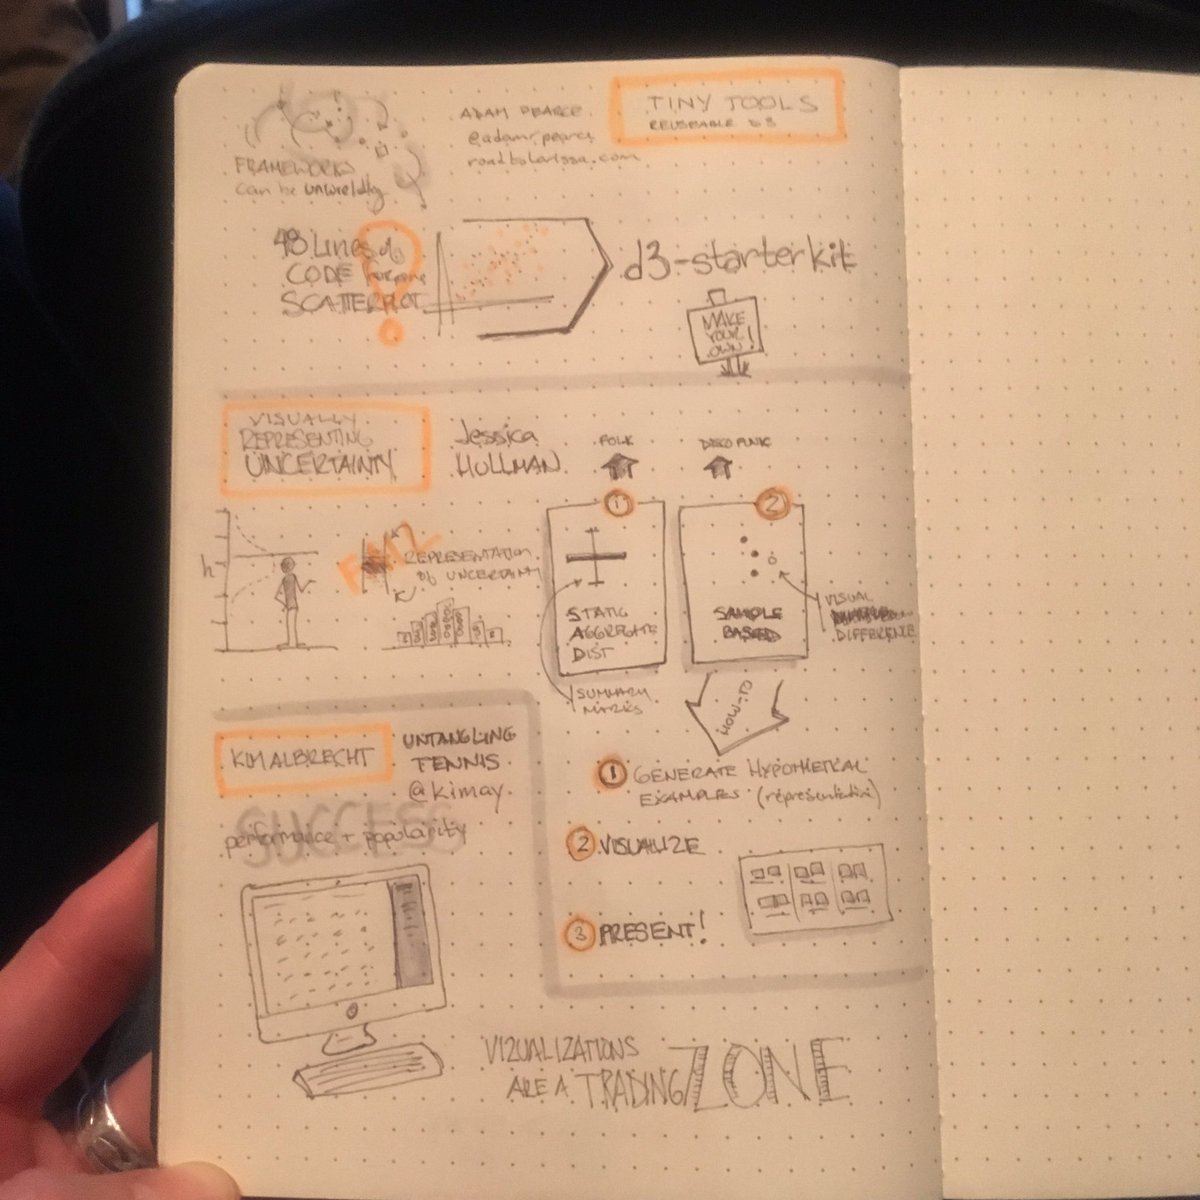 FRAMEWORKS
can be unwieldy
ADAM PEARCE
@adamrpearce
roadtolarissa.com
TINY TOOLS
REUSEABLE D3
48 Lines of
CODE for one
SCATTERPLOT
d3-starterkit
MAKE
YOUR
OWN!
VISUALLY
REPRESENTING
UNCERTAINTY
Jessica
HULLMAN
FOLK
DISCO FUNK
h
REPRESENTATION
of UNCERTAINTY
1
STATIC
AGGREGATE
DIST
SUMMARY
MARKS
2
SAMPLE
BASED
VISUAL
DIFFERENCE
HOW-TO
1 GENERATE HYPOTHETICAL
EXAMPLES (representative)
2 VISUALIZE
3 PRESENT!
KIM ALBRECHT
UNTANGLING
TENNIS
@kimay
SUCCESS
performance + popularity
VIZUALIZATIONS
ARE A TRADING ZONE